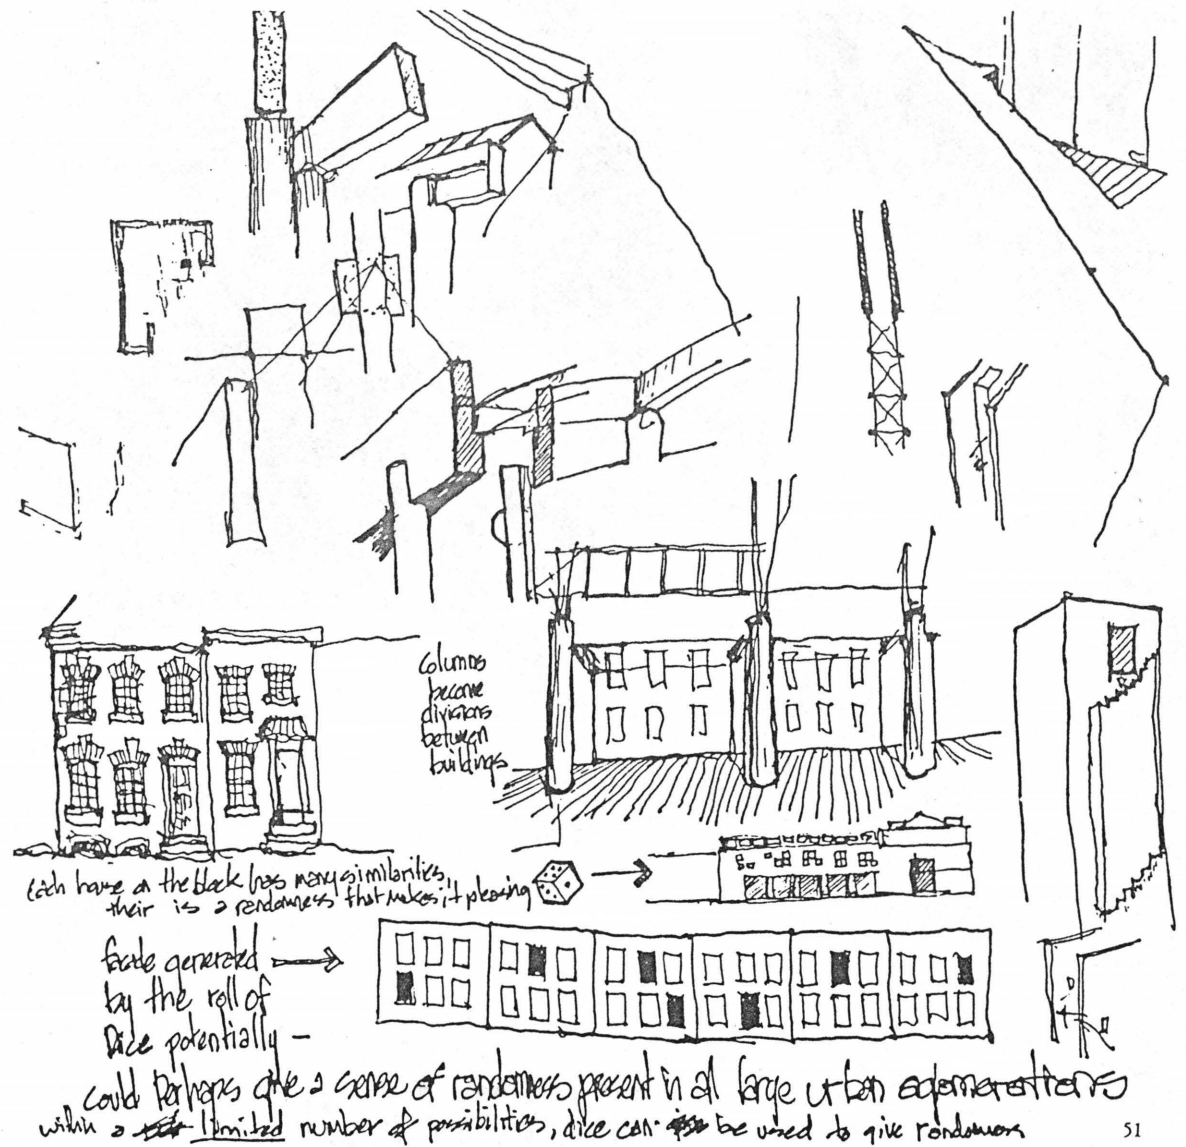 Columns
become
divisions
between
buildings
Each house on the block has many similarities,
their is a randomness that makes it pleasing
facade generated
by the roll of
Dice potentially –
could Perhaps give a sense of randomness present in all large urban aglomerations
within a limited number of possibilities, dice can be used to give randomness
51